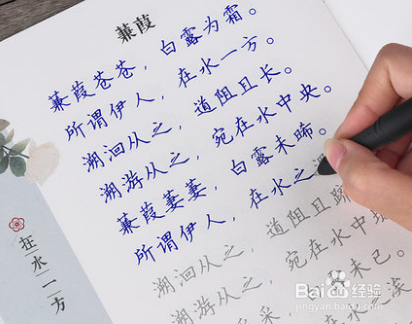 蒹葭
蒹葭苍苍，白露为霜。
所谓伊人，在水一方。
溯洄从之，道阻且长。
溯游从之，宛在水中央。
蒹葭萋萋，白露未晞。
所谓伊人，在水之
溯洄从之，道阻且跻
溯游从之，宛在水中坻
采，未已。
之涘
在水一方
Baidu 经验
jingyan.baidu.com